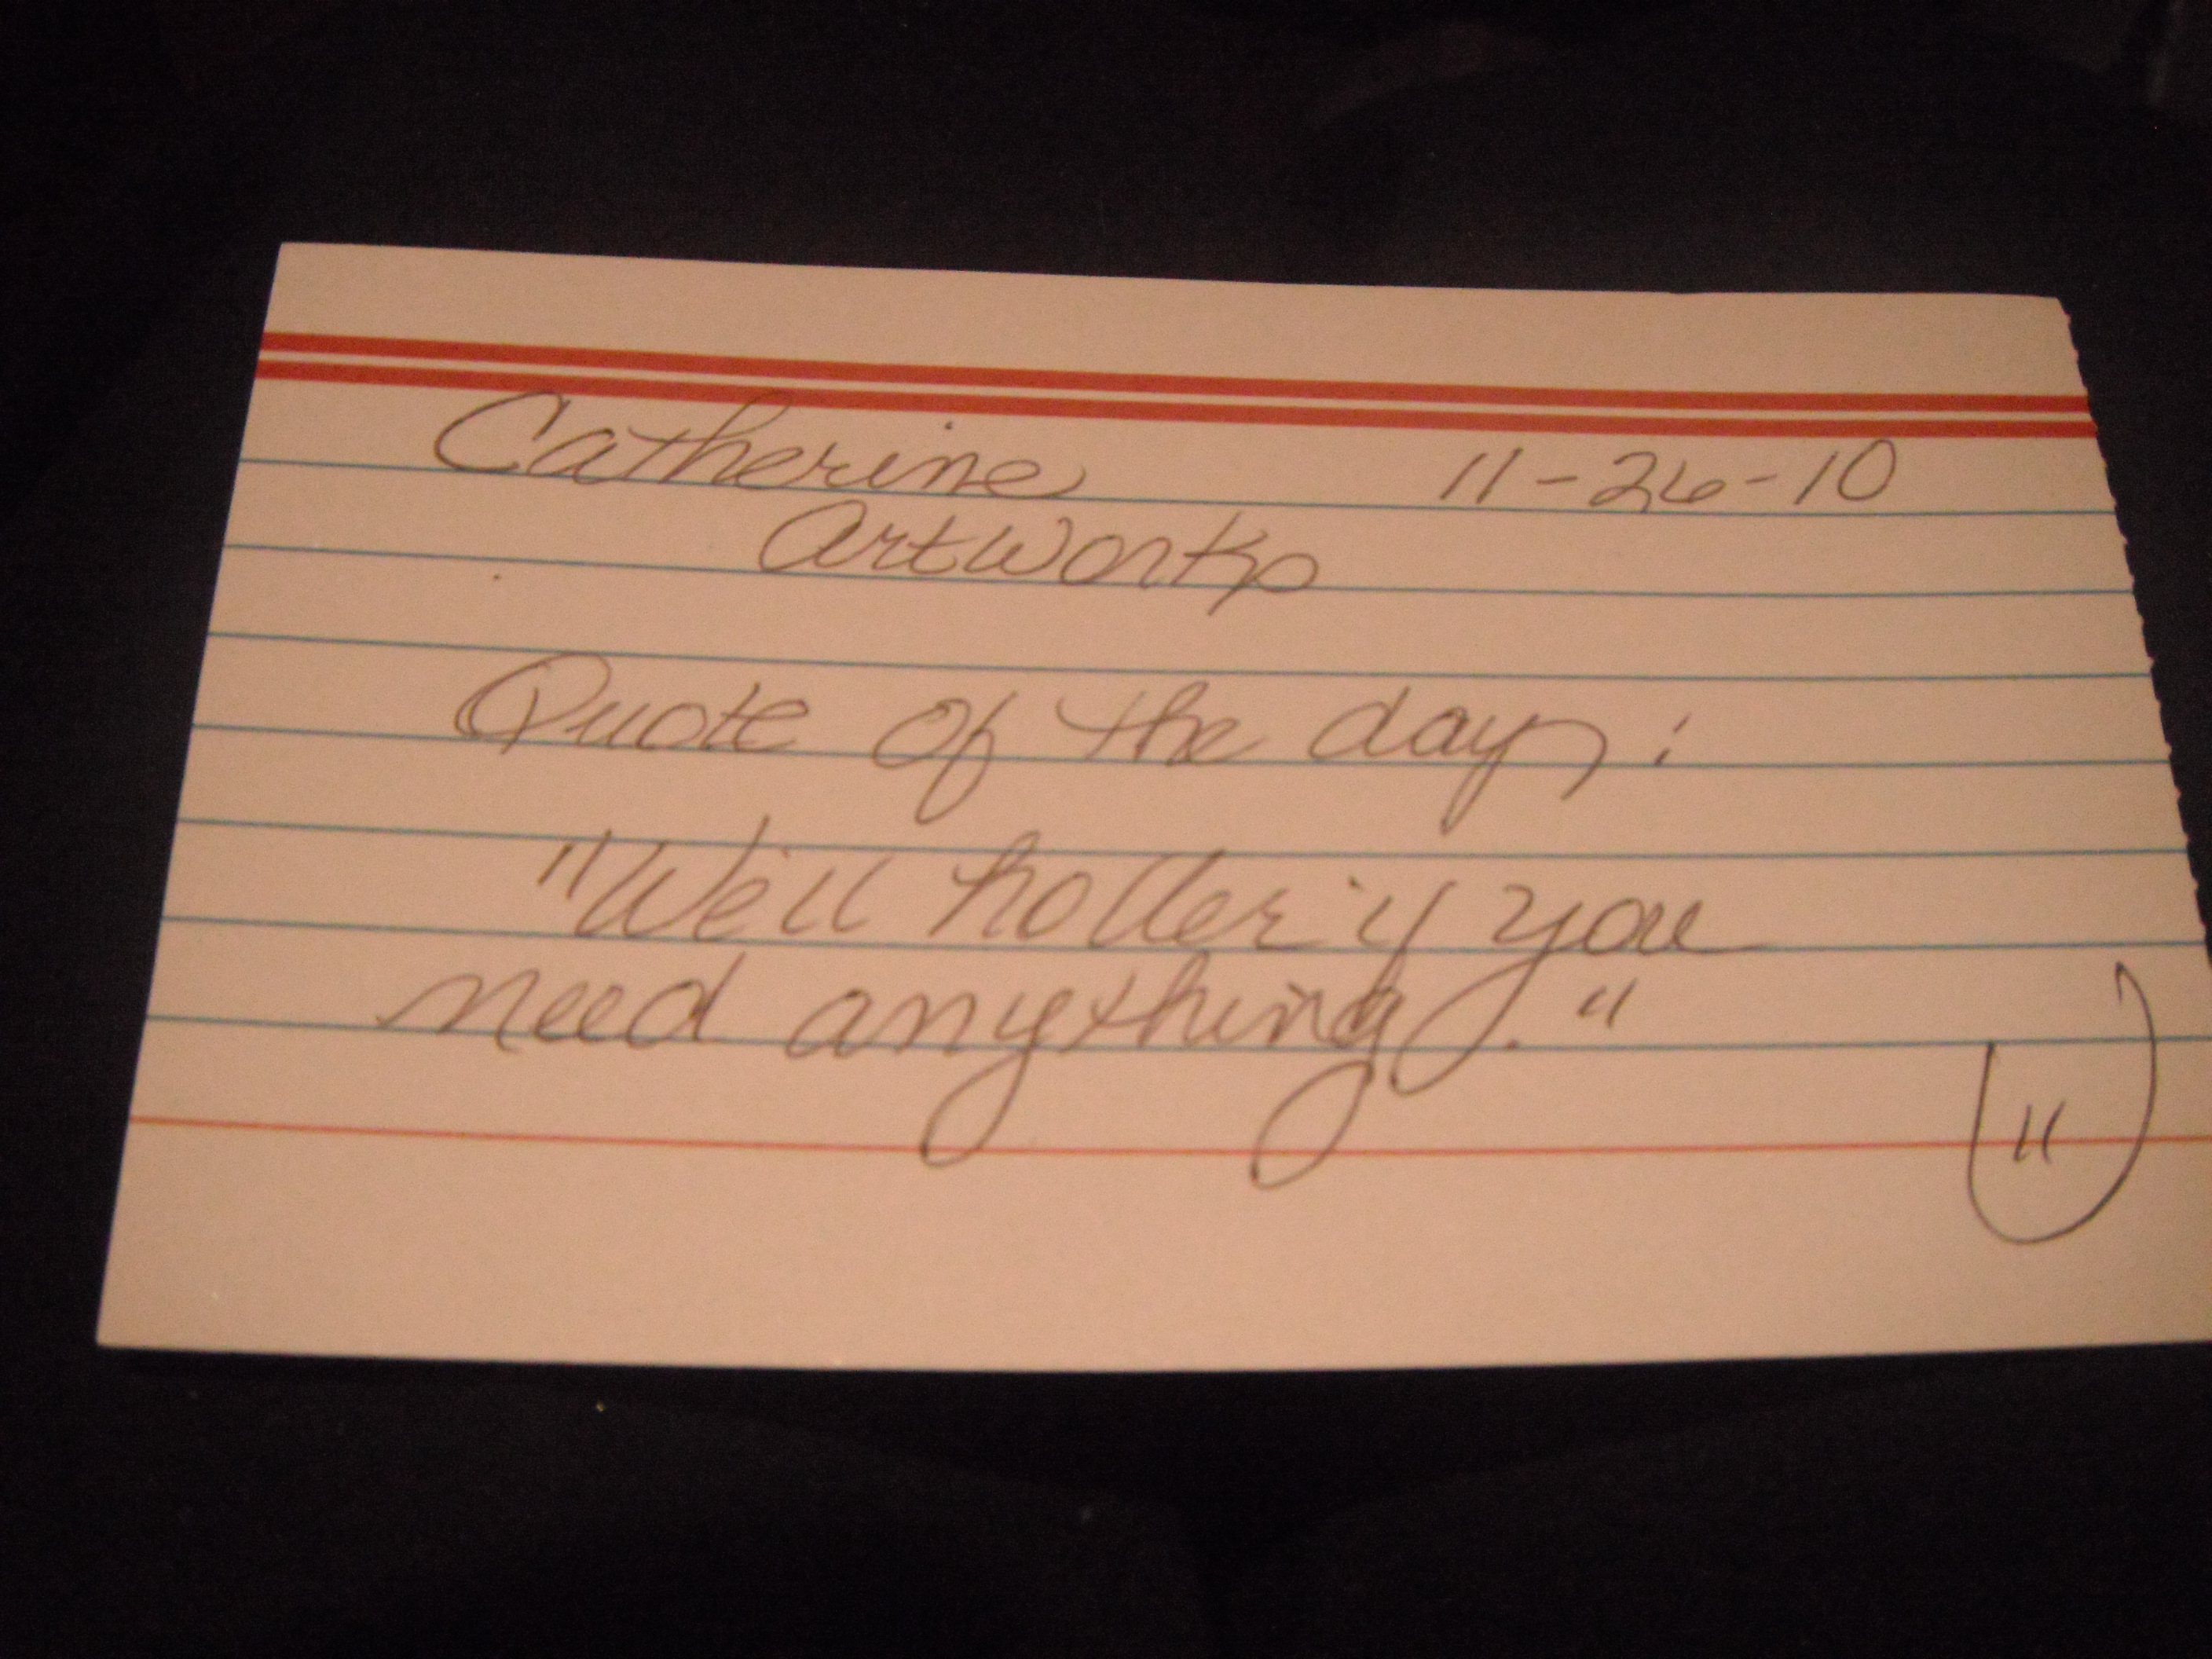 Catherine 11-26-10
Artworks
Quote of the day:
"We'll holler if you
need anything."